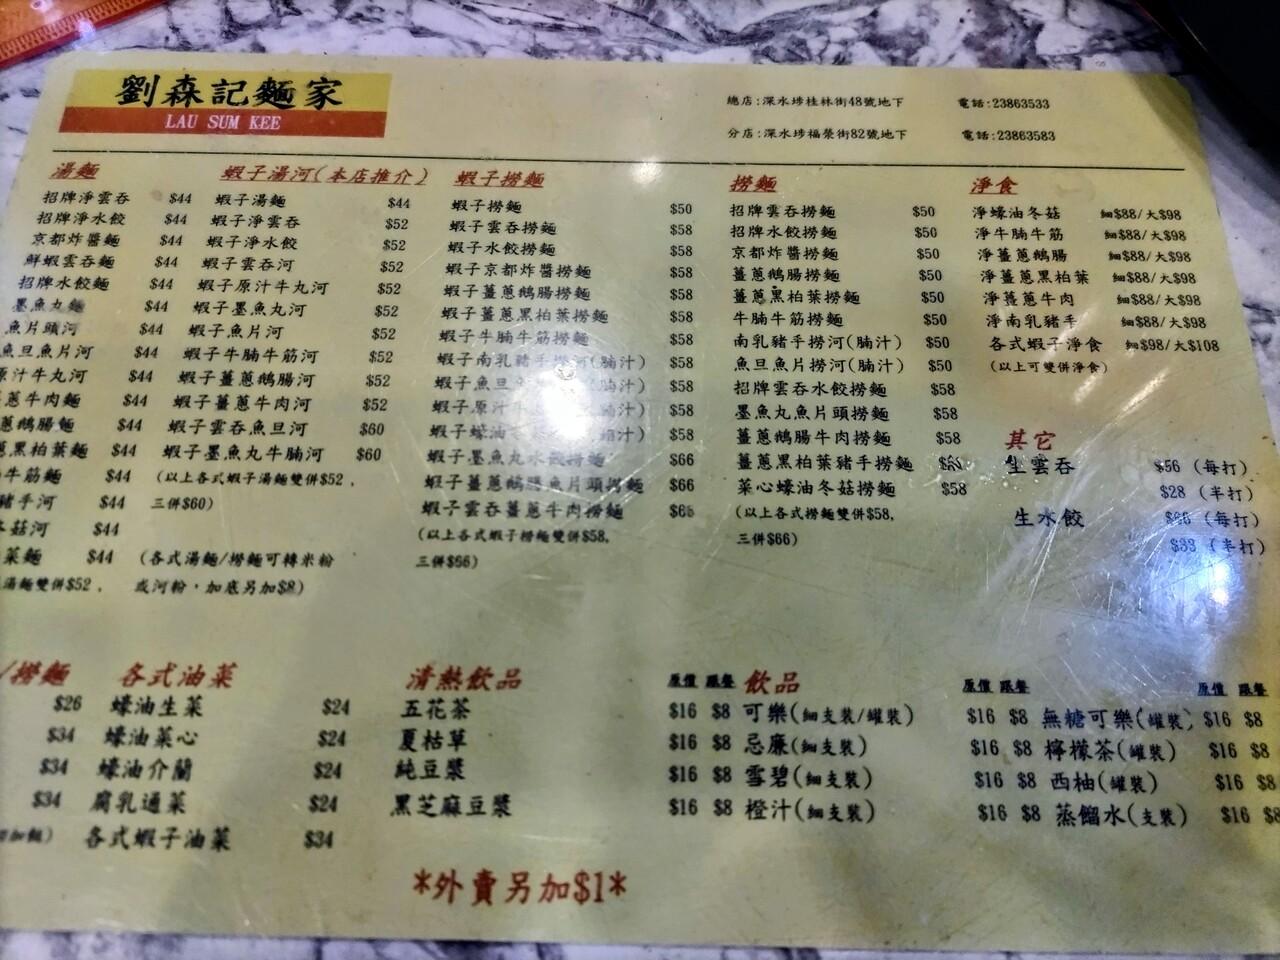 劉森記麵家
LAU SUM KEE
總店:深水埗桂林街48號地下 電話:23863533
分店:深水埗福榮街82號地下 電話:23863583
湯麵
招牌淨雲吞 $44
招牌淨水餃 $44
京都炸醬麵 $44
鮮蝦雲吞麵 $44
招牌水餃麵 $44
墨魚丸麵 $44
魚片頭河 $44
魚旦魚片河 $44
原汁牛丸河 $44
蔥牛肉麵 $44
蔥鵝腸麵 $44
蔥黑柏葉麵 $44
牛筋麵 $44
豬手河 $44
菇河 $44
菜麵 $44
湯麵雙併$52，
蝦子湯河(本店推介)
蝦子湯麵 $44
蝦子淨雲吞 $52
蝦子淨水餃 $52
蝦子雲吞河 $52
蝦子原汁牛丸河 $52
蝦子墨魚丸河 $52
蝦子魚片河 $52
蝦子牛腩牛筋河 $52
蝦子薑蔥鵝腸河 $52
蝦子薑蔥牛肉河 $52
蝦子雲吞魚旦河 $60
蝦子墨魚丸牛腩河 $60
(以上各式蝦子湯麵雙併$52，
三併$60)
(各式湯麵/撈麵可轉米粉
或河粉，加底另加$8)
蝦子撈麵
蝦子撈麵 $50
蝦子雲吞撈麵 $58
蝦子水餃撈麵 $58
蝦子京都炸醬撈麵 $58
蝦子薑蔥鵝腸撈麵 $58
蝦子薑蔥黑柏葉撈麵 $58
蝦子牛腩牛筋撈麵 $58
蝦子南乳豬手撈河(腩汁) $58
蝦子魚旦 腩汁) $58
蝦子原汁牛 腩汁) $58
蝦子蠔油 腩汁) $58
蝦子墨魚丸水餃撈麵 $66
蝦子薑蔥鵝腸魚片頭撈麵 $66
蝦子雲吞薑蔥牛肉撈麵 $66
(以上各式蝦子撈麵雙併$58，
三併$66)
撈麵
招牌雲吞撈麵 $50
招牌水餃撈麵 $50
京都炸醬撈麵 $50
薑蔥鵝腸撈麵 $50
薑蔥黑柏葉撈麵 $50
牛腩牛筋撈麵 $50
南乳豬手撈河(腩汁) $50
魚旦魚片撈河(腩汁) $50
招牌雲吞水餃撈麵 $58
墨魚丸魚片頭撈麵 $58
薑蔥鵝腸牛肉撈麵 $58
薑蔥黑柏葉豬手撈麵
菜心蠔油冬菇撈麵 $58
(以上各式撈麵雙併$58，
三併$66)
淨食
淨蠔油冬菇 細$88/大$98
淨牛腩牛筋 細$88/大$98
淨薑蔥鵝腸 細$88/大$98
淨薑蔥黑柏葉 細$88/大$98
淨薑蔥牛肉 細$88/大$98
淨南乳豬手 細$88/大$98
各式蝦子淨食 細$98/大$108
(以上可雙併淨食)
其它
生雲吞 $56 (每打)
$28 (半打)
生水餃 $66 (每打)
$33 (半打)
/撈麵
$26
$34
$34
$34
各式油菜
蠔油生菜 $24
蠔油菜心 $24
蠔油介蘭 $24
腐乳通菜 $24
各式蝦子油菜 $34
清熱飲品 原價 跟餐
五花茶 $16 $8
夏枯草 $16 $8
純豆漿 $16 $8
黑芝麻豆漿 $16 $8
飲品 原價 跟餐 原價 跟餐
可樂(細支裝/罐裝) $16 $8 無糖可樂(罐裝) $16 $8
忌廉(細支裝) $16 $8 檸檬茶(罐裝) $16 $8
雪碧(細支裝) $16 $8 西柚(罐裝) $16 $8
橙汁(細支裝) $16 $8 蒸餾水(支裝) $16 $8
*外賣另加$1*